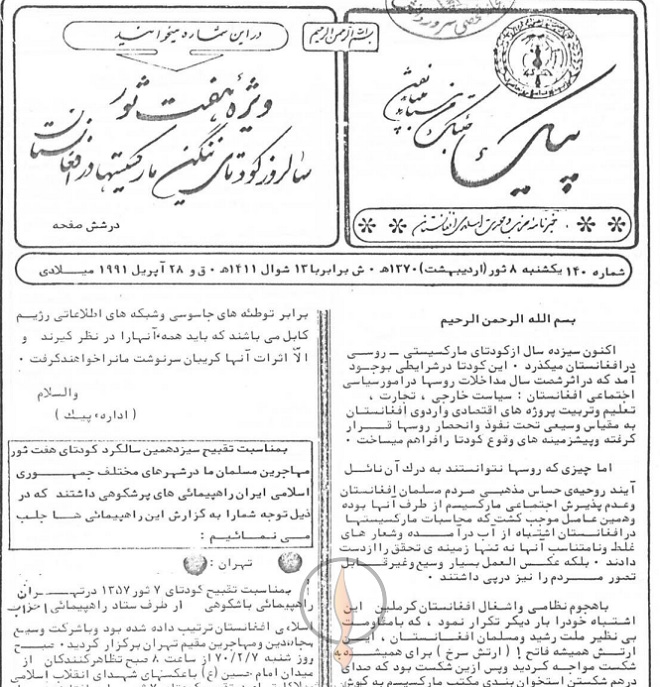 بسم الله الرحمن الرحیم
پیک
خبرنامه
در این شماره میخوانید
ویژهٔ هفت ثور
سالروز کودتای ننگین مارکسیستها در افغانستان
در شش صفحه
شماره ۱۴۰ یکشنبه ۸ ثور (اردیبهشت) ۱۳۷۰ه‍ ۰ ش برابر با ۱۳ شوال ۱۴۱۱ه‍ ۰ ق و ۲۸ آپریل ۱۹۹۱ میلادی
بسم الله الرحمن الرحیم
اکنون سیزده سال از کودتای مارکسیستی ــ روسی
در افغانستان میگذرد ۰ این کودتا در شرایطی بوجود
آمد که در اثر شصت سال مداخلات روسها در امور سیاسی
اجتماعی افغانستان : سیاست خارجی ، تجارت ،
تعلیم و تربیت پروژه های اقتصادی و اردوی افغانستان
به مقیاس وسیعی تحت نفوذ و انحصار روسها قرار
گرفته و پیشزمینه های وقوع کودتا را فراهم میساخت ۰
اما چیزی که روسها نتوانستند به درک آن نائل
آیند روحیه‌ی حساس مذهبی مردم مسلمان افغانستان
و عدم پذیرش اجتماعی مارکسیسم از طرف آنها بوده
و همین عامل موجب گشت که محاسبات مارکسیستها
در افغانستان اشتباه از آب در آمده و شعار های
غلط و نامتناسب آنها نه تنها زمینه ی تحقق را از دست
دادند ۰ بلکه عکس العمل بسیار وسیع و غیر قابل
تصور مردم را نیز در پی داشتند ۰
با هجوم نظامی و اشغال افغانستان کرملین این
اشتباه خود را بار دیگر تکرار نمود ، که با مقاومت
بی نظیر ملت رشید و مسلمان افغانستان ،
ارتش همیشه فاتح ! ( ارتش سرخ ) برای همیشه به
شکست مواجه گردید و پس ازین شکست بود که صدای
درهم شکستن استخوان بندی مکتب مارکسیسم به گوش
برابر توطئه های جاسوسی و شبکه های اطلاعاتی رژیم
کابل می باشند که باید همه آنها را در نظر گیرند و
الاّ اثرات آنها گریبان سرنوشت ما نرا خواهند گرفت ۰
والسلام
( اداره‌ء پیک )
بمناسبت تقبیح سیزدهمین سالگرد کودتای هفت ثور
مهاجرین مسلمان ما در شهر های مختلف جمهوری
اسلامی ایران راهپیمائی های پرشکوهی داشتند که در
ذیل توجه شما را به گزارش این راهپیمائی ها جلب
می نمائیم :
تهران :
بمناسبت تقبیح کودتای ۷ ثور ۱۳۵۷ در تهران
راهپیمائی باشکوهی از طرف ستاد راهپیمائی احزاب
اسلامی افغانستان ترتیب داده شده بود و باشرکت وسیع
مجاهدین و مهاجرین مقیم تهران برگزار گردید ۰ صبح
روز شنبه ۷۰/۲/۷ از ساعت ۸ صبح تظاهرکنندگان از
میدان امام حسین (ع) با عکسهای شهدای انقلاب اسلامی